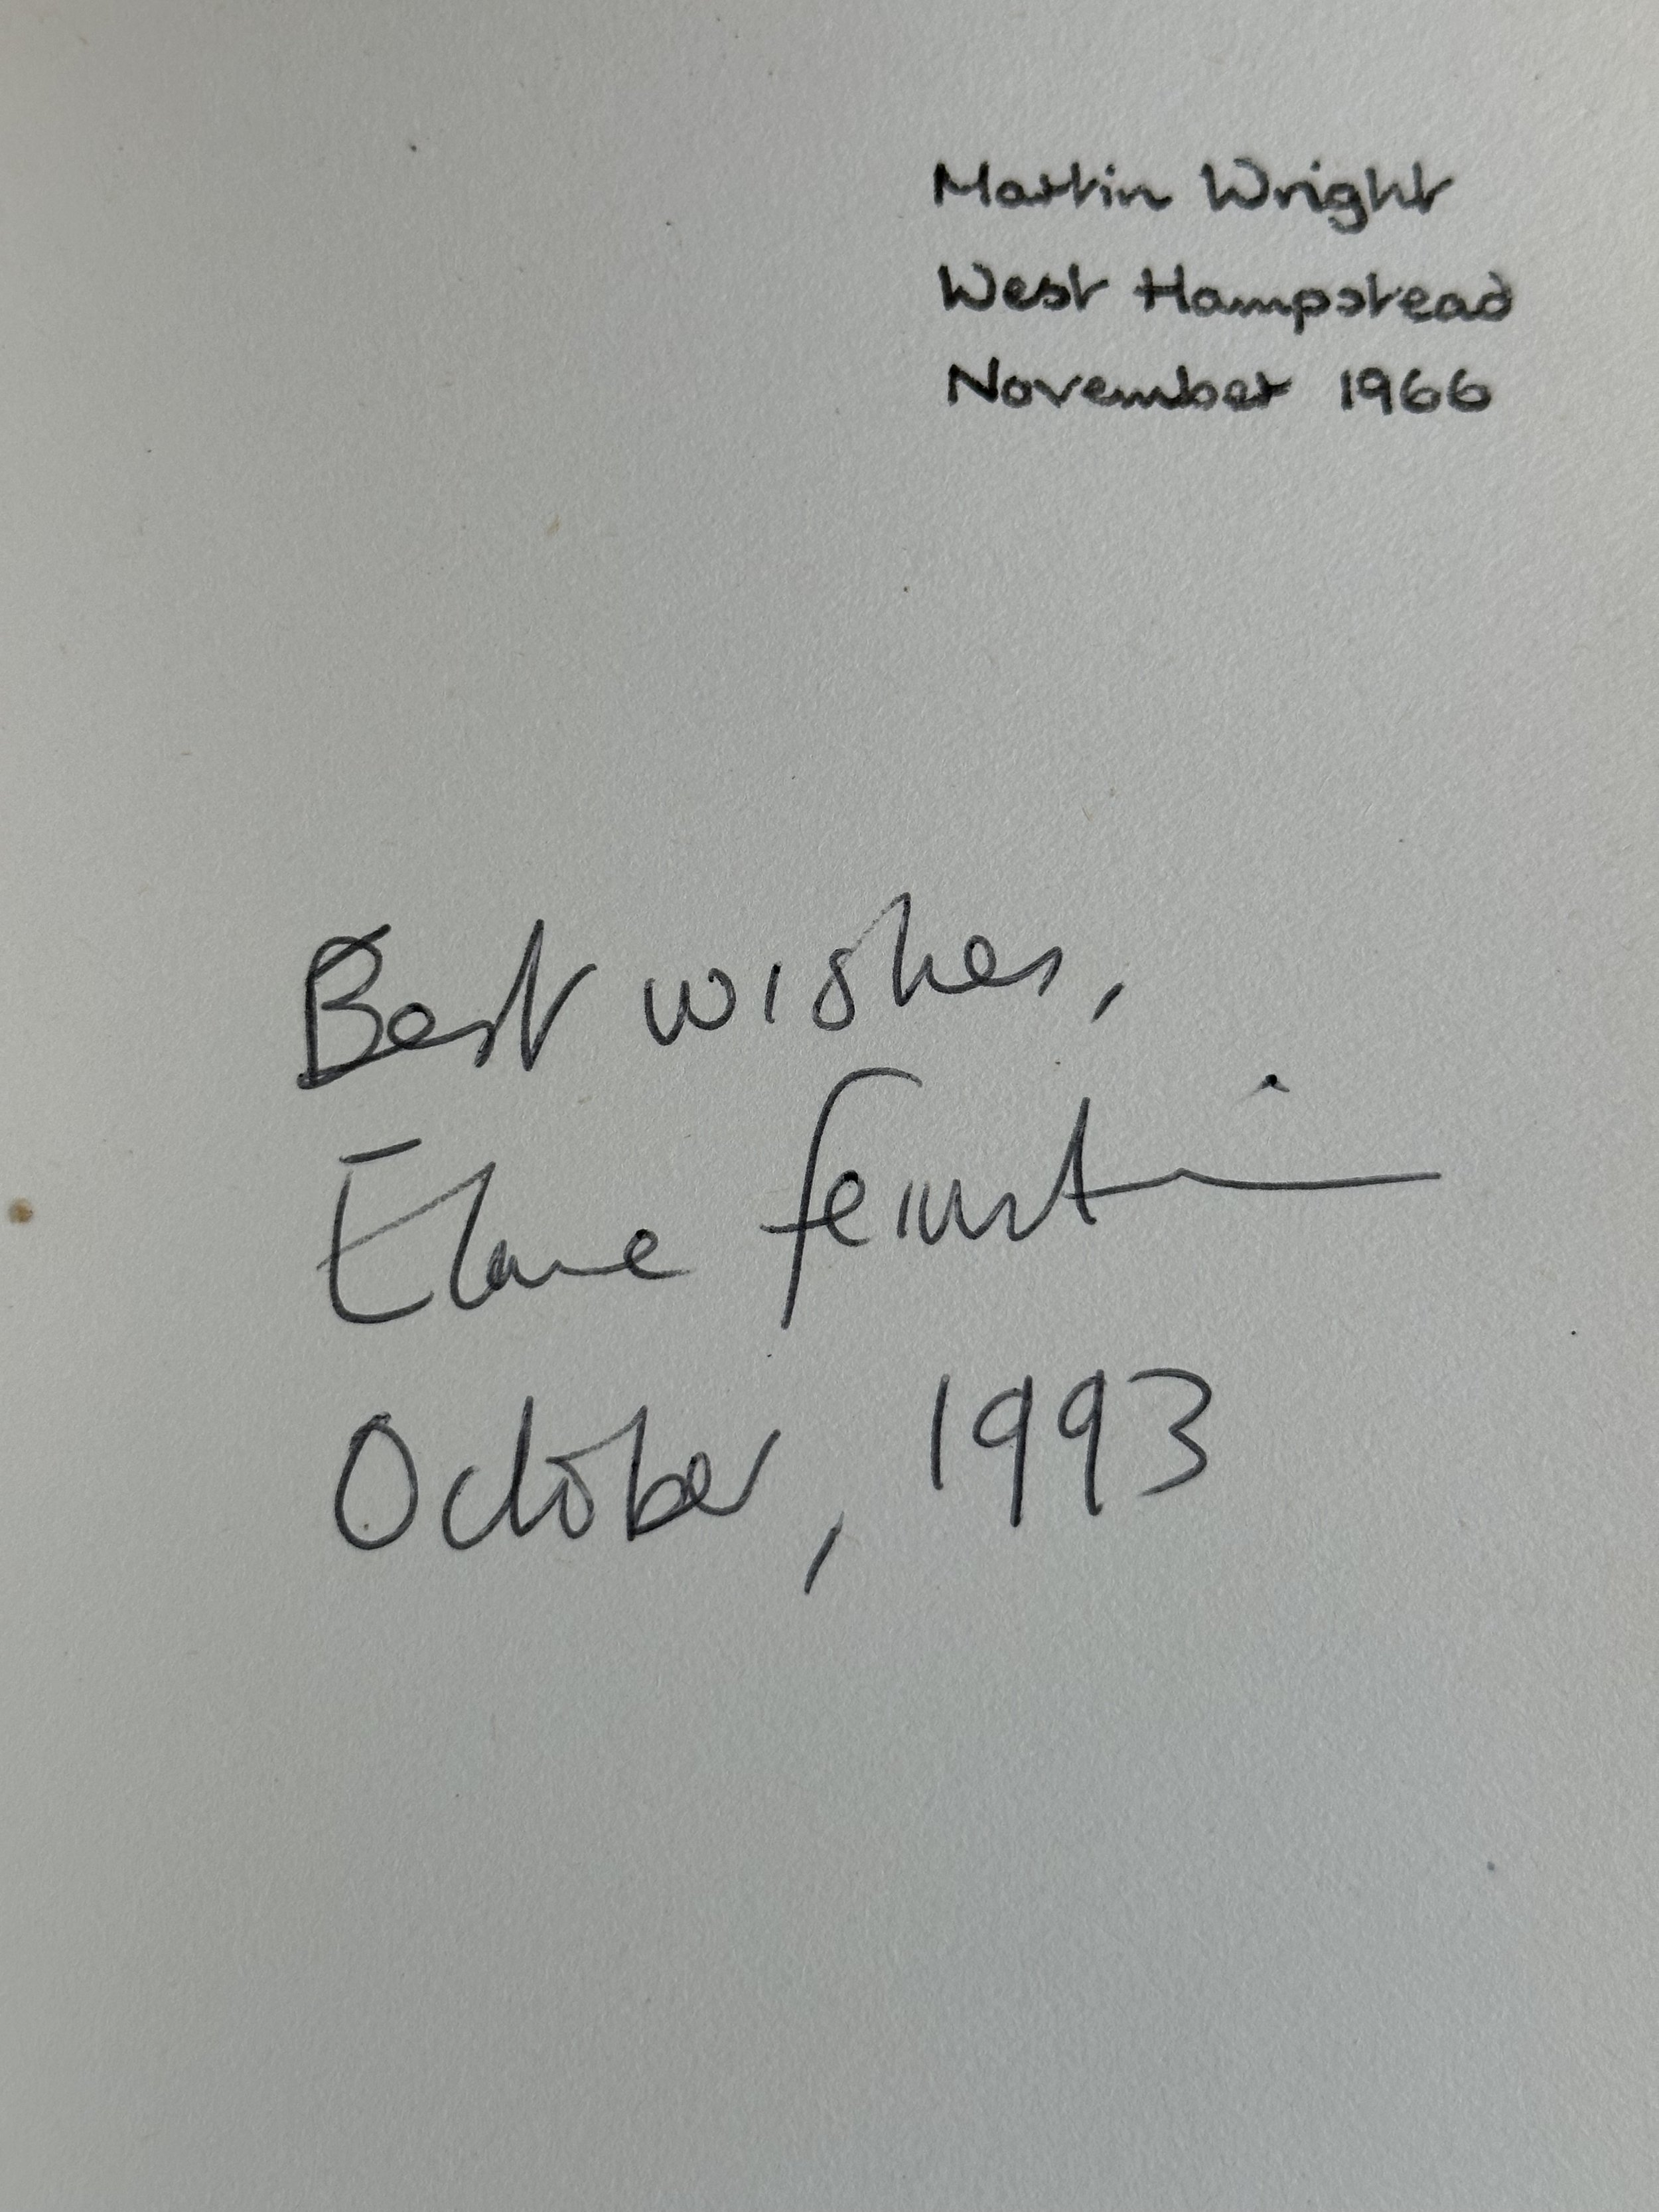 Martin Wright
West Hampstead
November 1966
Best wishes,
Elaine Feinstein
October, 1993